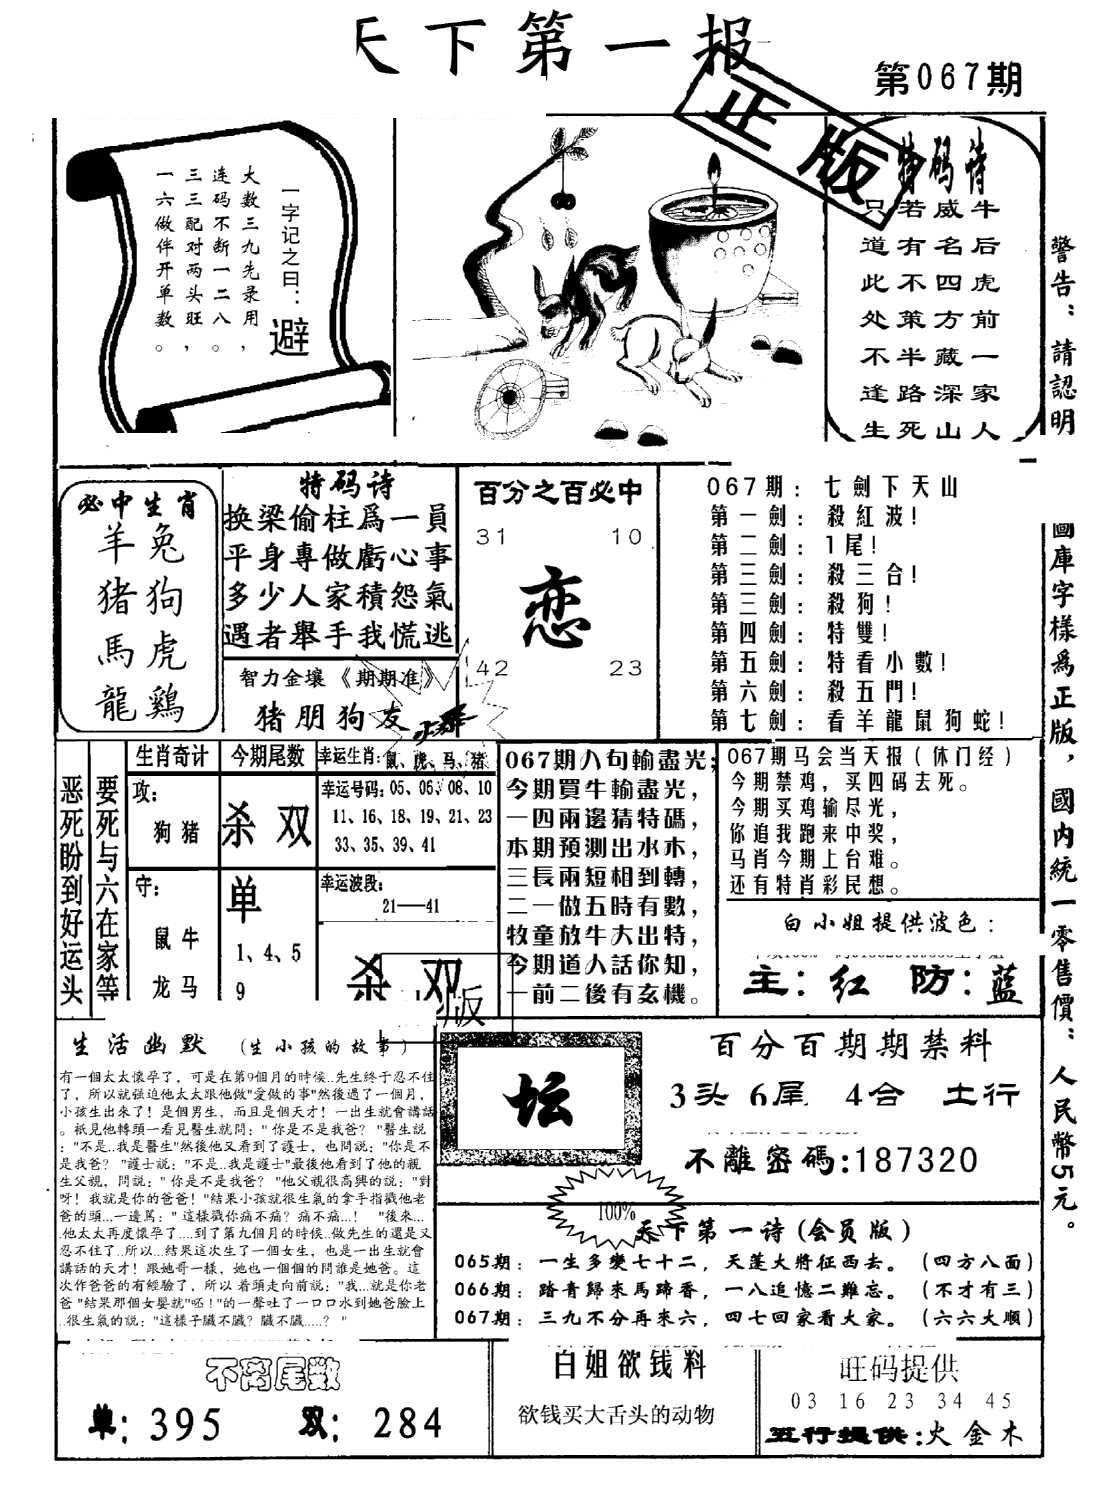 天下第一报
正版
第067期
一字记之曰：避
大数三九先录用，
连码不断一二八。
三三配对两头旺，
一六做伴开单数。
特码诗
只若威牛
道有名后
此不四虎
处策方前
不半藏一
逢路深家
生死山人
警告：請認明
圖庫字樣為正版，國内統一零售價：人民幣5元。
必中生肖
羊兔
猪狗
馬虎
龍鷄
特码诗
换梁偷柱爲一員
平身專做虧心事
多少人家積怨氣
遇者舉手我慌逃
智力金壤《期期准》
猪朋狗友
百分之百必中
31 10
恋
42 23
067期：七劍下天山
第一劍：殺紅波！
第二劍：1尾！
第三劍：殺三合！
第三劍：殺狗！
第四劍：特雙！
第五劍：特看小數！
第六劍：殺五門！
第七劍：看羊龍鼠狗蛇！
恶死盼到好运头
要死与六在家等
生肖奇计
攻：
狗猪
守：
鼠牛
龙马
今期尾数
杀双
单
1、4、5
9
幸运生肖：鼠、虎、马、猪
幸运号码：05、06、08、10
11、16、18、19、21、23
33、35、39、41
幸运波段：
21—41
杀双
版
067期八句輸盡光；
今期買牛輸盡光，
一四兩邊猜特碼，
本期預測出水木，
三長兩短相到轉，
二一做五時有數，
牧童放牛大出特，
今期道人話你知，
一前二後有玄機。
067期马会当天报（休门经）
今期禁鸡，买四码去死。
今期买鸡输尽光，
你追我跑来中奖，
马肖今期上台难。
还有特肖彩民想。
白小姐提供波色：
主：红 防：蓝
生活幽默 （生小孩的故事）
有一個太太懷孕了，可是在第9個月的時候..先生終于忍不住
了，所以就强迫他太太跟他做"愛做的事"然後過了一個月，
小孩生出來了！是個男生，而且是個天才！一出生就會講話
。祇見他轉頭一看見醫生就問："你是不是我爸？"醫生説
："不是..我是醫生"然後他又看到了護士，也問説："你是不
是我爸？"護士説："不是..我是護士"最後他看到了他的親
生父親，問説："你是不是我爸？"他父親很高興的説："對
呀！我就是你的爸爸！"結果小孩就很生氣的拿手指戳他老
爸的頭...一邊罵："這樣戳你痛不痛？痛不痛...！"後來...
.他太太再度懷孕了....到了第九個月的時候..做先生的還是又
忍不住了..所以...結果這次生了一個女生，也是一出生就會
講話的天才！跟她哥一樣，她也一個個的問誰是她爸。這
次作爸爸的有經驗了，所以着頭走向前説："我...就是你老
爸"結果那個女嬰就"呸！"的一聲吐了一口口水到她爸臉上
..很生氣的説："這樣子臟不臟？臟不臟.....？"
坛
百分百期期禁料
3头 6尾 4合 土行
不離密碼：187320
100%
天下第一诗（会员版）
065期：一生多變七十二，天蓬大將征西去。（四方八面）
066期：踏青歸來馬蹄香，一八追憶二難忘。（不才有三）
067期：三九不分再來六，四七回家看大家。（六六大順）
不离尾数
单：395 双：284
白姐欲钱料
欲钱买大舌头的动物
旺码提供
03 16 23 34 45
五行提供：火金木